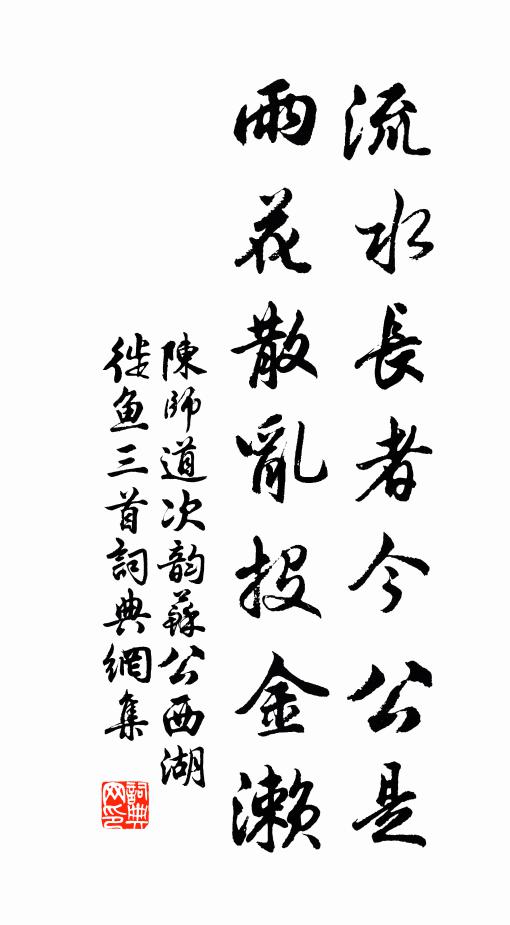 流水長者今公是
雨花散亂投金瀨
陳師道次韵蘇公西湖
徙鱼三首詞典網集
詞典网印